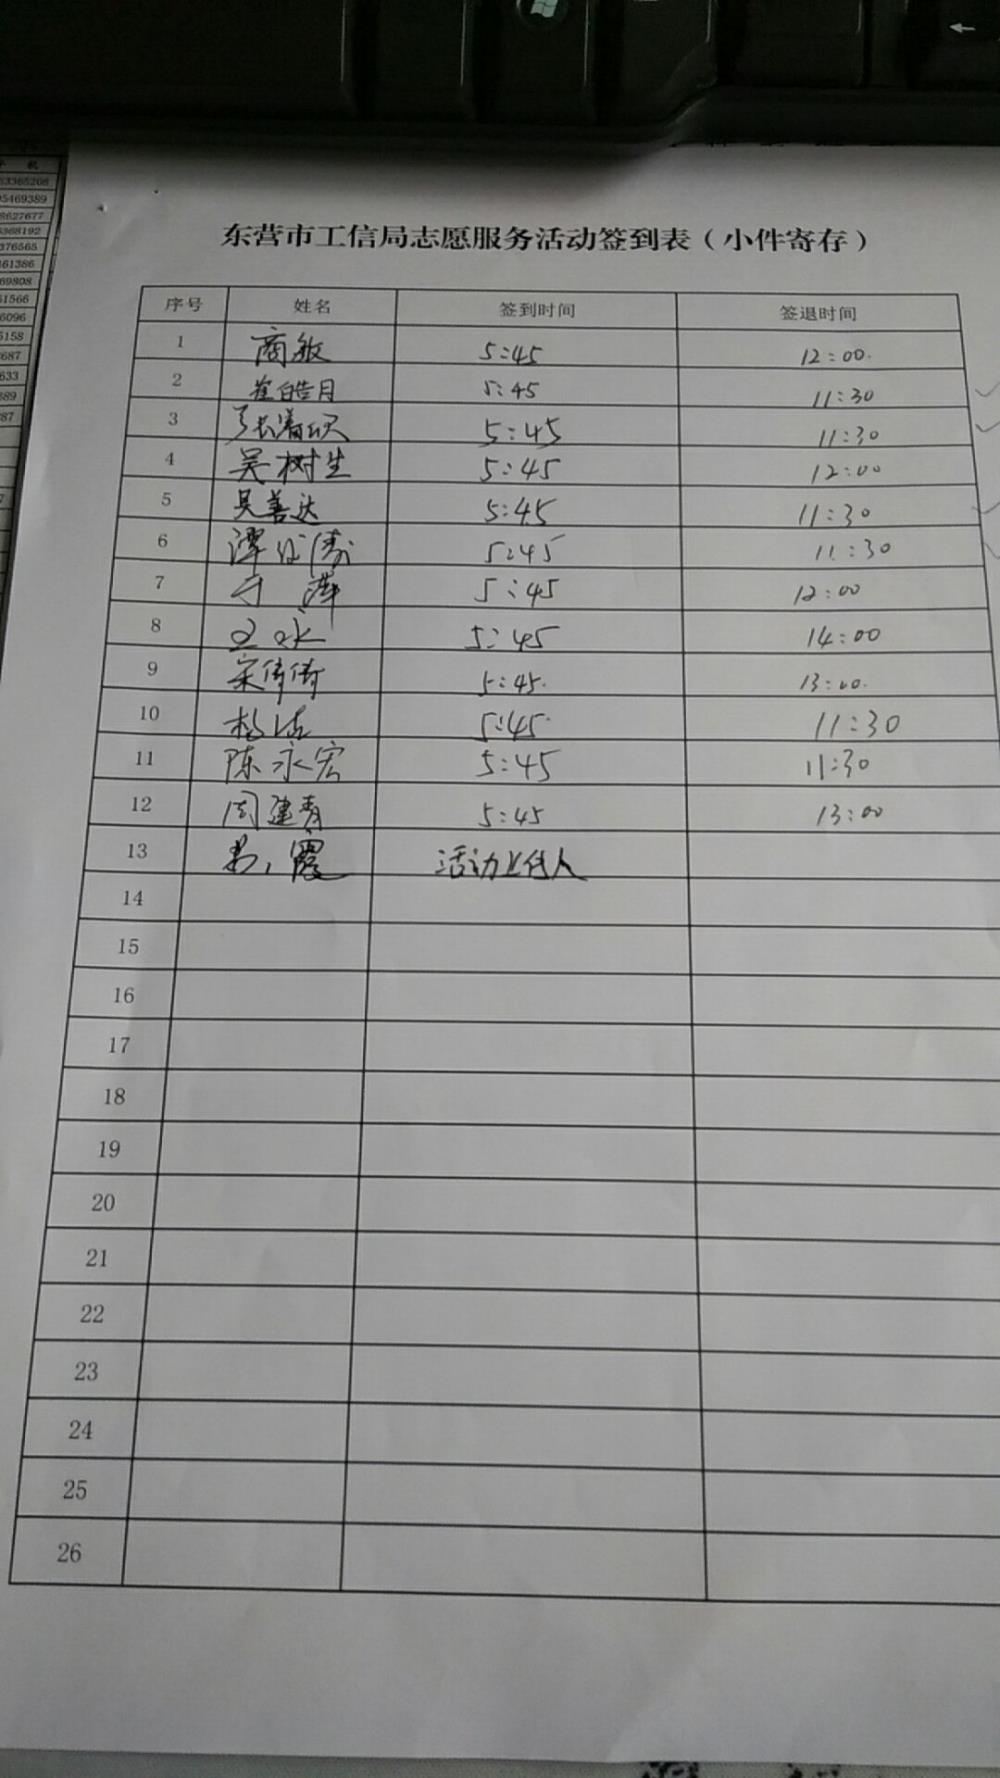 机
63365206
05469389
8627677
6368192
376565
461386
69808
51566
6096
5158
687
633
389
87
东营市工信局志愿服务活动签到表（小件寄存）
序号 姓名 签到时间 签退时间
1 商敏 5:45 12:00
2 崔皓月 5:45 11:30
3 5:45 11:30
4 吴树生 5:45 12:00
5 吴善达 5:45 11:30
6 谭 涛 5:45 11:30
7 于萍 5:45 12:00
8 王冰 5:45 14:00
9 宋倩倩 5:45 13:00
10 杨洁 5:45 11:30
11 陈永宏 5:45 11:30
12 周建青 5:45 13:00
13 霞 活动 人
14
15
16
17
18
19
20
21
22
23
24
25
26